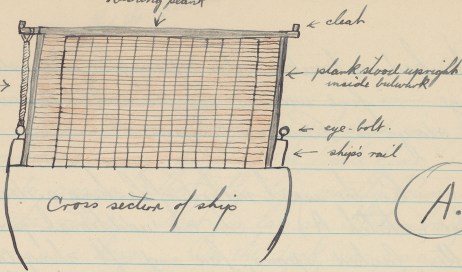 plank
cleat
plank stood upright
inside bulwark
eye-bolt.
ship's rail
Cross section of ship
A.